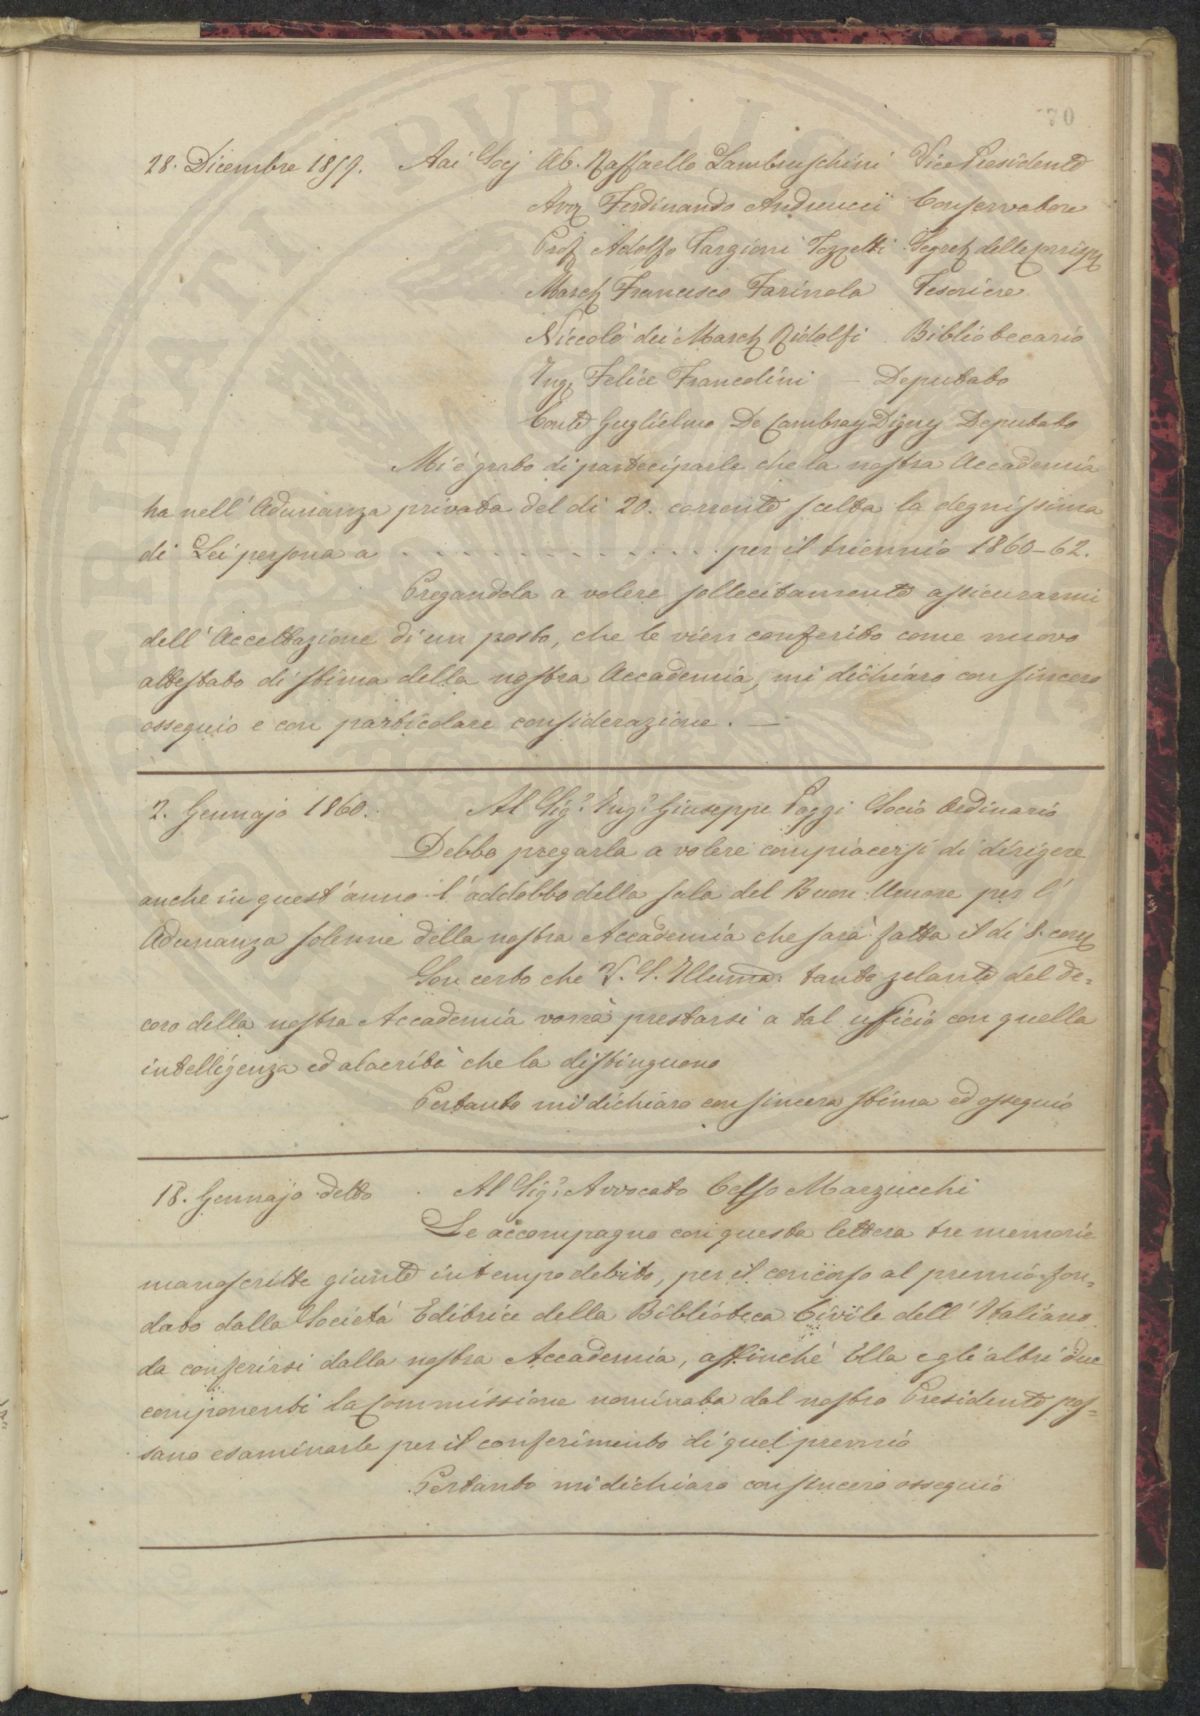 70
28. Dicembre 1859. Aai Socj Ab. Raffaello Lambruschini Vice Presidente
Avv. Ferdinando Andreucci Conservatore
Prof. Adolfo Targioni Tozzetti Segret. delle Corrisp.
March. Francesco Farinola Tesoriere
Niccolò dei March. Ridolfi Bibliotecario
Ing. Felice Francolini — Deputato
Conte Guglielmo De Cambray Digny Deputato
Mi è grato di parteciparle che la nostra Accademia
ha nell' Adunanza privata del dì 20. corrente scelta la degnissima
di Lei persona a . . . . . . . . . . . . . . per il triennio 1860-62.
Pregandola a volere sollecitamente assicurarmi
dell' Accettazione di un posto, che le vien conferito come nuovo
attestato di stima della nostra Accademia, mi dichiaro con sincero
ossequio e con particolare considerazione. —
2. Gennajo 1860. Al Sig.r Ing.r Giuseppe Poggi Socio Ordinario
Debbo pregarla a volere compiacersi di dirigere
anche in quest' anno l' addobbo della sala del Buon Umore per l'
Adunanza solenne della nostra Accademia che sarà fatta il dì 8. corr.
Son certo che V. S. Illuma. tanto zelante del de-
coro della nostra Accademia vorrà prestarsi a tal ufficio con quella
intelligenza ed alacrità che la distinguono
Pertanto mi dichiaro con sincera stima ed ossequio
18. Gennajo detto. Al Sig.r Avvocato Celso Marzucchi
Le accompagno con questa lettera tre memorie
manoscritte giunte in tempo debito, per il concorso al premio fon-
dato dalla Società Editrice della Biblioteca Civile dell' Italiano
da conferirsi dalla nostra Accademia, affinchè Ella e gli altri due
componenti la Commissione nominata dal nostro Presidente pos-
sano esaminarle per il conferimento di quel premio
Pertanto mi dichiaro con sincero ossequio